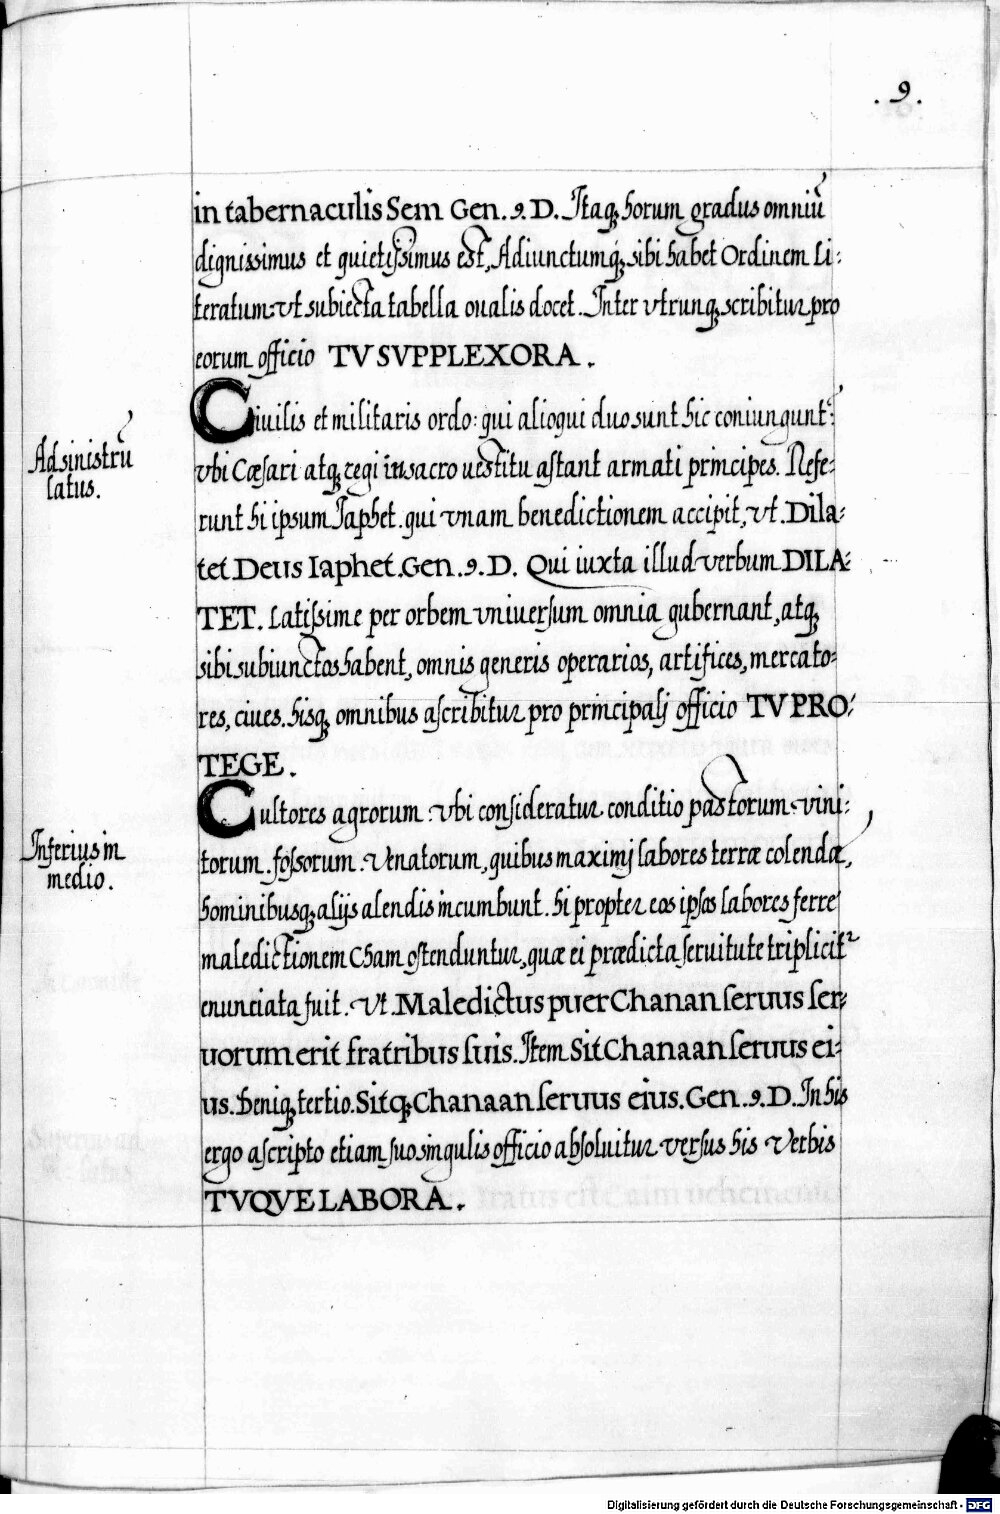 .9.
in tabernaculis Sem Gen. 9. D. Itaq; horum gradus omniū
dignissimus et quietissimus est, Adiunctumq; sibi habet Ordinem Li:
teratum: vt subiecta tabella oualis docet. Inter vtrunq; scribitur pro
eorum officio TV SVPPLEX ORA.
Ciuilis et militaris ordo: qui alioqui duo sunt hic coniungunt:
Ad sinistrū
latus.
vbi Cæsari atq; regi in sacro uestitu astant armati principes. Refe-
runt hi ipsum Japhet. qui vnam benedictionem accipit, vt. Dila-
tet Deus Iaphet. Gen. 9. D. Qui iuxta illud verbum DILA-
TET. Latissime per orbem vniuersum omnia gubernant, atq;
sibi subiunctos habent, omnis generis operarios, artifices, mercato-
res, ciues. hisq; omnibus ascribitur pro principalj officio TV PRO-
TEGE.
Cultores agrorum: vbi consideratur conditio pastorum vini:
Inferius in
medio.
torum. fossorum. Venatorum, quibus maximj labores terræ colendæ,
hominibusq; alijs alendis incumbunt. hi propter eos ipsos labores ferre
maledictionem Cham ostenduntur, quæ ei prædicta seruitute triplicit
enunciata fuit. Vt. Maledictus puer Chanan seruus ser-
uorum erit fratribus suis. Item Sit Chanaan seruus ei-
us. Deniq; tertio. Sitq; Chanaan seruus eius. Gen. 9. D. In his
ergo ascripto etiam suo singulis officio absoluitur versus his Verbis
TVQVE LABORA.
Digitalisierung gefördert durch die Deutsche Forschungsgemeinschaft - DFG